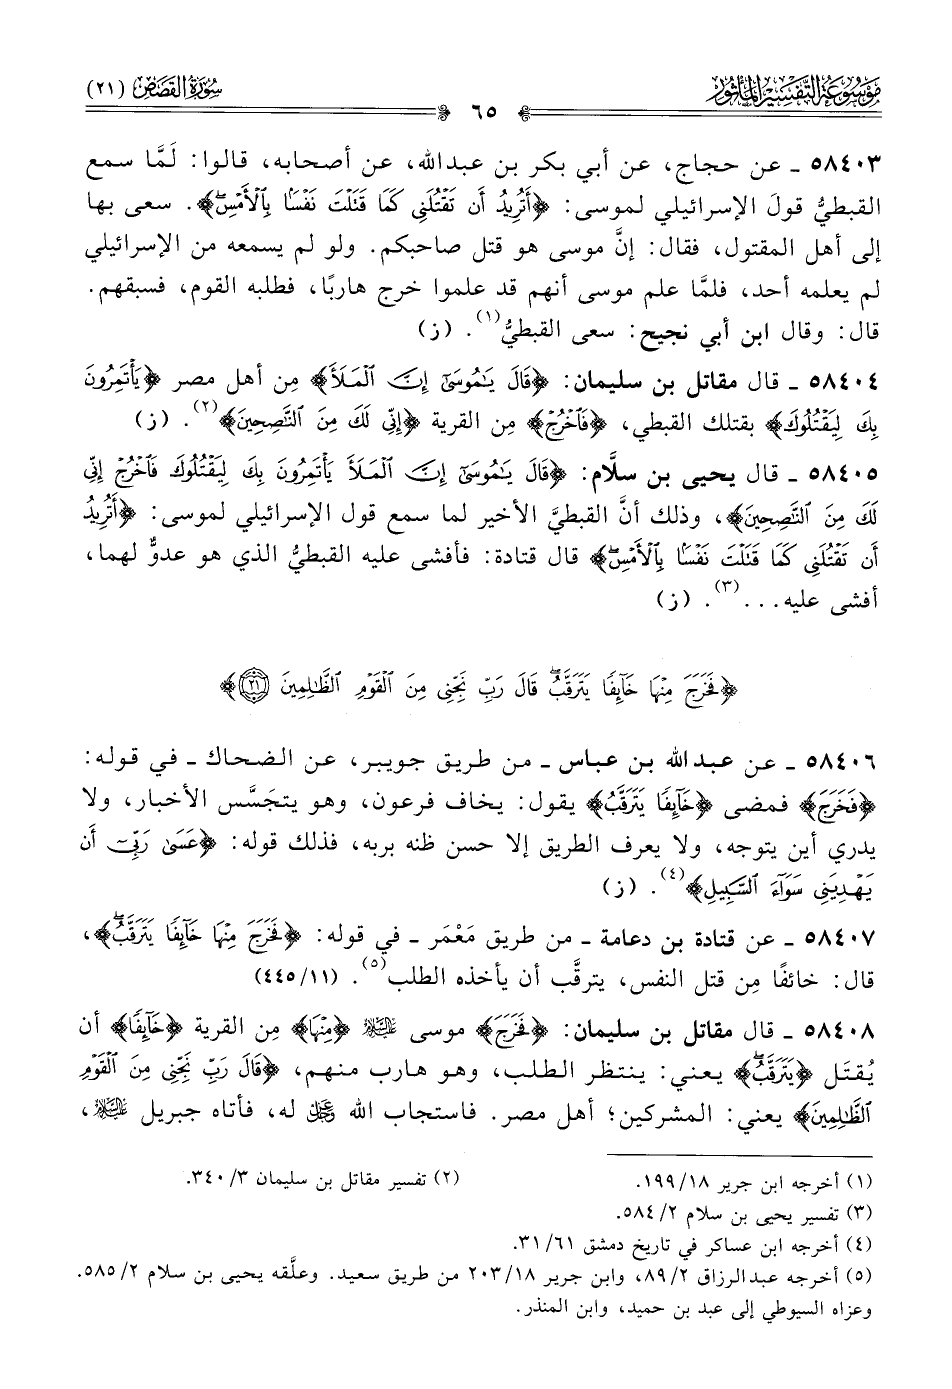 موسوعة التفسير المأثور
٦٥
سورة القصص (٢١)
٥٨٤٠٣ ـ عن حجاج، عن أبي بكر بن عبدالله، عن أصحابه، قالوا: لَمَّا سمع
القبطيُّ قولَ الإسرائيلي لموسى: ﴿أَتُرِيدُ أَن تَقْتُلَنِي كَمَا قَتَلْتَ نَفْسًا بِالْأَمْسِ﴾. سعى بها
إلى أهل المقتول، فقال: إنَّ موسى هو قتل صاحبكم. ولو لم يسمعه من الإسرائيلي
لم يعلمه أحد، فلمَّا علم موسى أنهم قد علموا خرج هاربًا، فطلبه القوم، فسبقهم.
قال: وقال ابن أبي نجيح: سعى القبطيُّ(١). (ز)
٥٨٤٠٤ ـ قال مقاتل بن سليمان: ﴿قَالَ يَٰمُوسَىٰٓ إِنَّ ٱلْمَلَأَ﴾ مِن أهل مصر ﴿يَأْتَمِرُونَ
بِكَ لِيَقْتُلُوكَ﴾ بقتلك القبطي، ﴿فَٱخْرُجْ﴾ مِن القرية ﴿إِنِّي لَكَ مِنَ ٱلنَّٰصِحِينَ﴾(٢). (ز)
٥٨٤٠٥ ـ قال يحيى بن سلَّام: ﴿قَالَ يَٰمُوسَىٰٓ إِنَّ ٱلْمَلَأَ يَأْتَمِرُونَ بِكَ لِيَقْتُلُوكَ فَٱخْرُجْ إِنِّي
لَكَ مِنَ ٱلنَّٰصِحِينَ﴾، وذلك أنَّ القبطيَّ الأخير لما سمع قول الإسرائيلي لموسى: ﴿أَتُرِيدُ
أَن تَقْتُلَنِي كَمَا قَتَلْتَ نَفْسًا بِٱلْأَمْسِ﴾ قال قتادة: فأفشى عليه القبطيُّ الذي هو عدوٌّ لهما،
أفشى عليه...(٣). (ز)
﴿فَخَرَجَ مِنْهَا خَآئِفًا يَتَرَقَّبُ قَالَ رَبِّ نَجِّنِي مِنَ ٱلْقَوْمِ ٱلظَّٰلِمِينَ ٢١﴾
٥٨٤٠٦ ـ عن عبدالله بن عباس ـ من طريق جويبر، عن الضحاك ـ في قوله:
﴿فَخَرَجَ﴾ فمضى ﴿خَآئِفًا يَتَرَقَّبُ﴾ يقول: يخاف فرعون، وهو يتجَسَّس الأخبار، ولا
يدري أين يتوجه، ولا يعرف الطريق إلا حسن ظنه بربه، فذلك قوله: ﴿عَسَىٰ رَبِّيٓ أَن
يَهْدِيَنِي سَوَآءَ ٱلسَّبِيلِ﴾(٤). (ز)
٥٨٤٠٧ ـ عن قتادة بن دعامة ـ من طريق مَعْمَر ـ في قوله: ﴿فَخَرَجَ مِنْهَا خَآئِفًا يَتَرَقَّبُ﴾،
قال: خائفًا مِن قتل النفس، يترقَّب أن يأخذه الطلب(٥). (٤٤٥/١١)
٥٨٤٠٨ ـ قال مقاتل بن سليمان: ﴿فَخَرَجَ﴾ موسى عليه السلام ﴿مِنْهَا﴾ مِن القرية ﴿خَآئِفًا﴾ أن
يُقتَل ﴿يَتَرَقَّبُ﴾ يعني: ينتظر الطلب، وهو هارب منهم، ﴿قَالَ رَبِّ نَجِّنِي مِنَ ٱلْقَوْمِ
ٱلظَّٰلِمِينَ﴾ يعني: المشركين؛ أهل مصر. فاستجاب الله عز وجل له، فأتاه جبريل عليه السلام،
(١) أخرجه ابن جرير ١٨/ ١٩٩. (٢) تفسير مقاتل بن سليمان ٣/ ٣٤٠.
(٣) تفسير يحيى بن سلام ٢/ ٥٨٤.
(٤) أخرجه ابن عساكر في تاريخ دمشق ٦١/ ٣١.
(٥) أخرجه عبدالرزاق ٢/ ٨٩، وابن جرير ١٨/ ٢٠٣ من طريق سعيد. وعلَّقه يحيى بن سلام ٢/ ٥٨٥.
وعزاه السيوطي إلى عبد بن حميد، وابن المنذر.